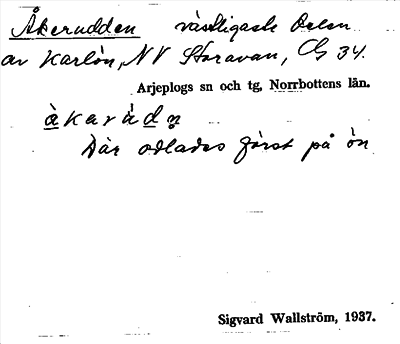 Åkerudden västligaste delen
av Karlön, NV Storavan, G 34.
Arjeplogs sn och tg, Norrbottens län.
Där odlades först på ön
Sigvard Wallström, 1937.